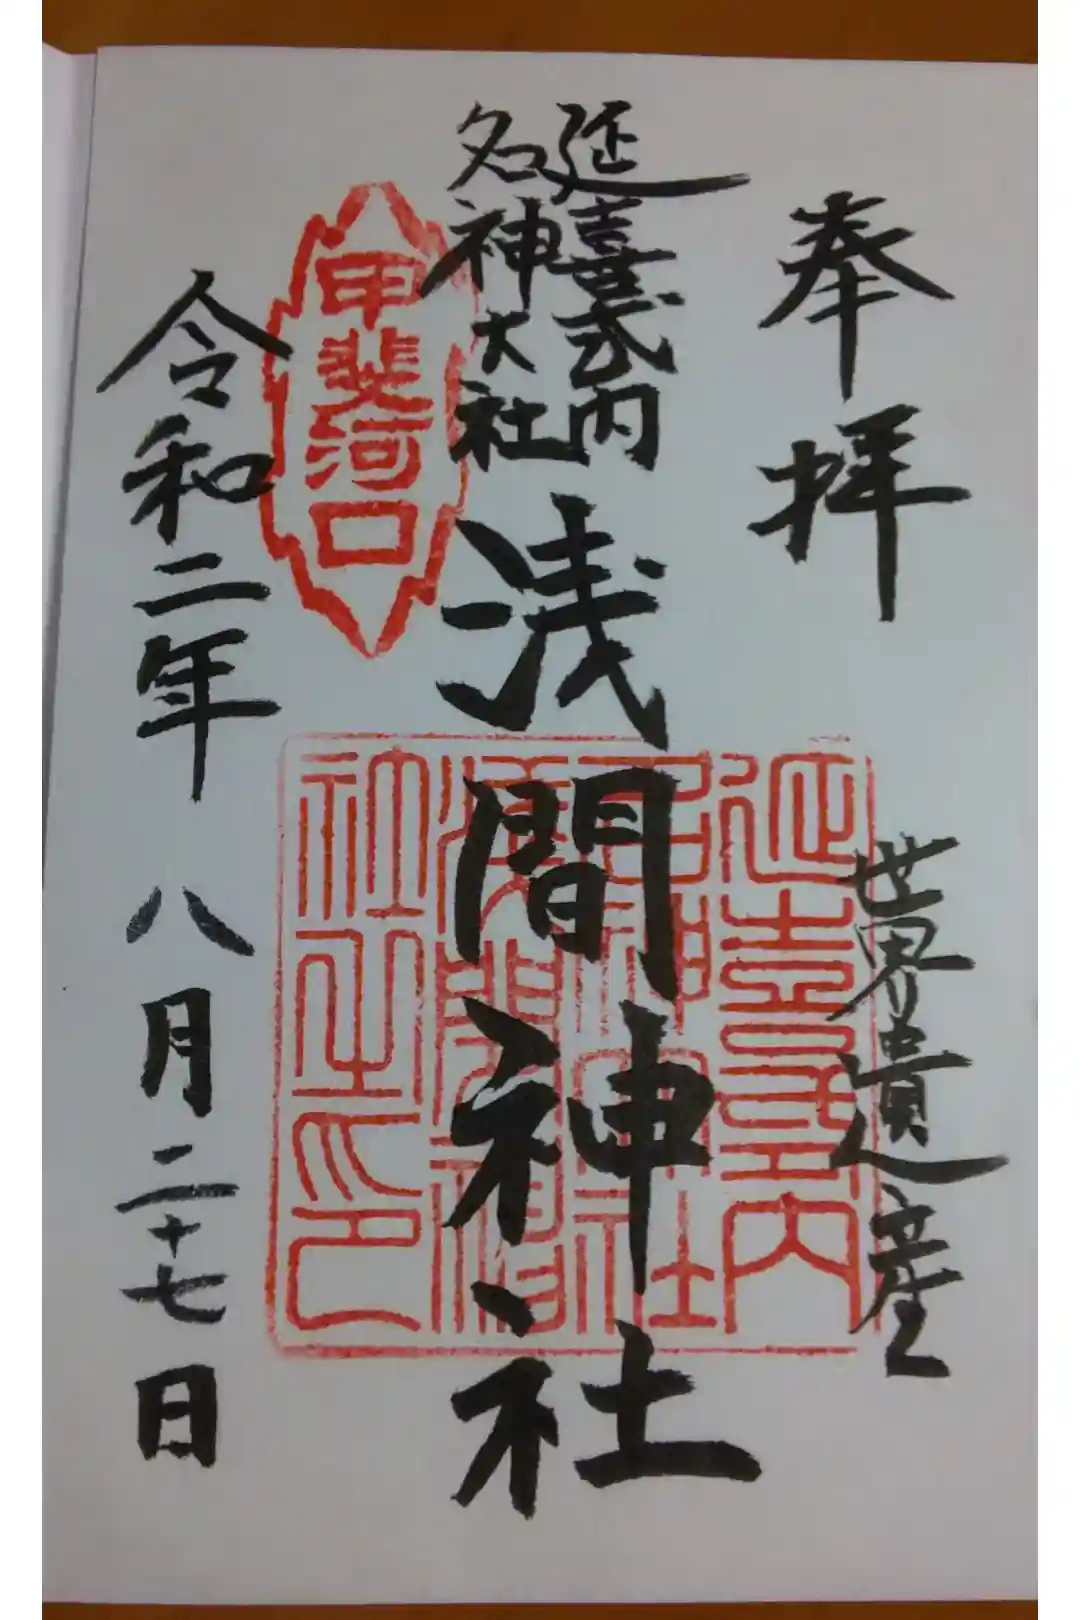 奉拝
世界遺産
延喜式内
名神大社
浅間神社
甲斐河口
令和二年 八月二十七日
延喜式内
名神大社
社之印